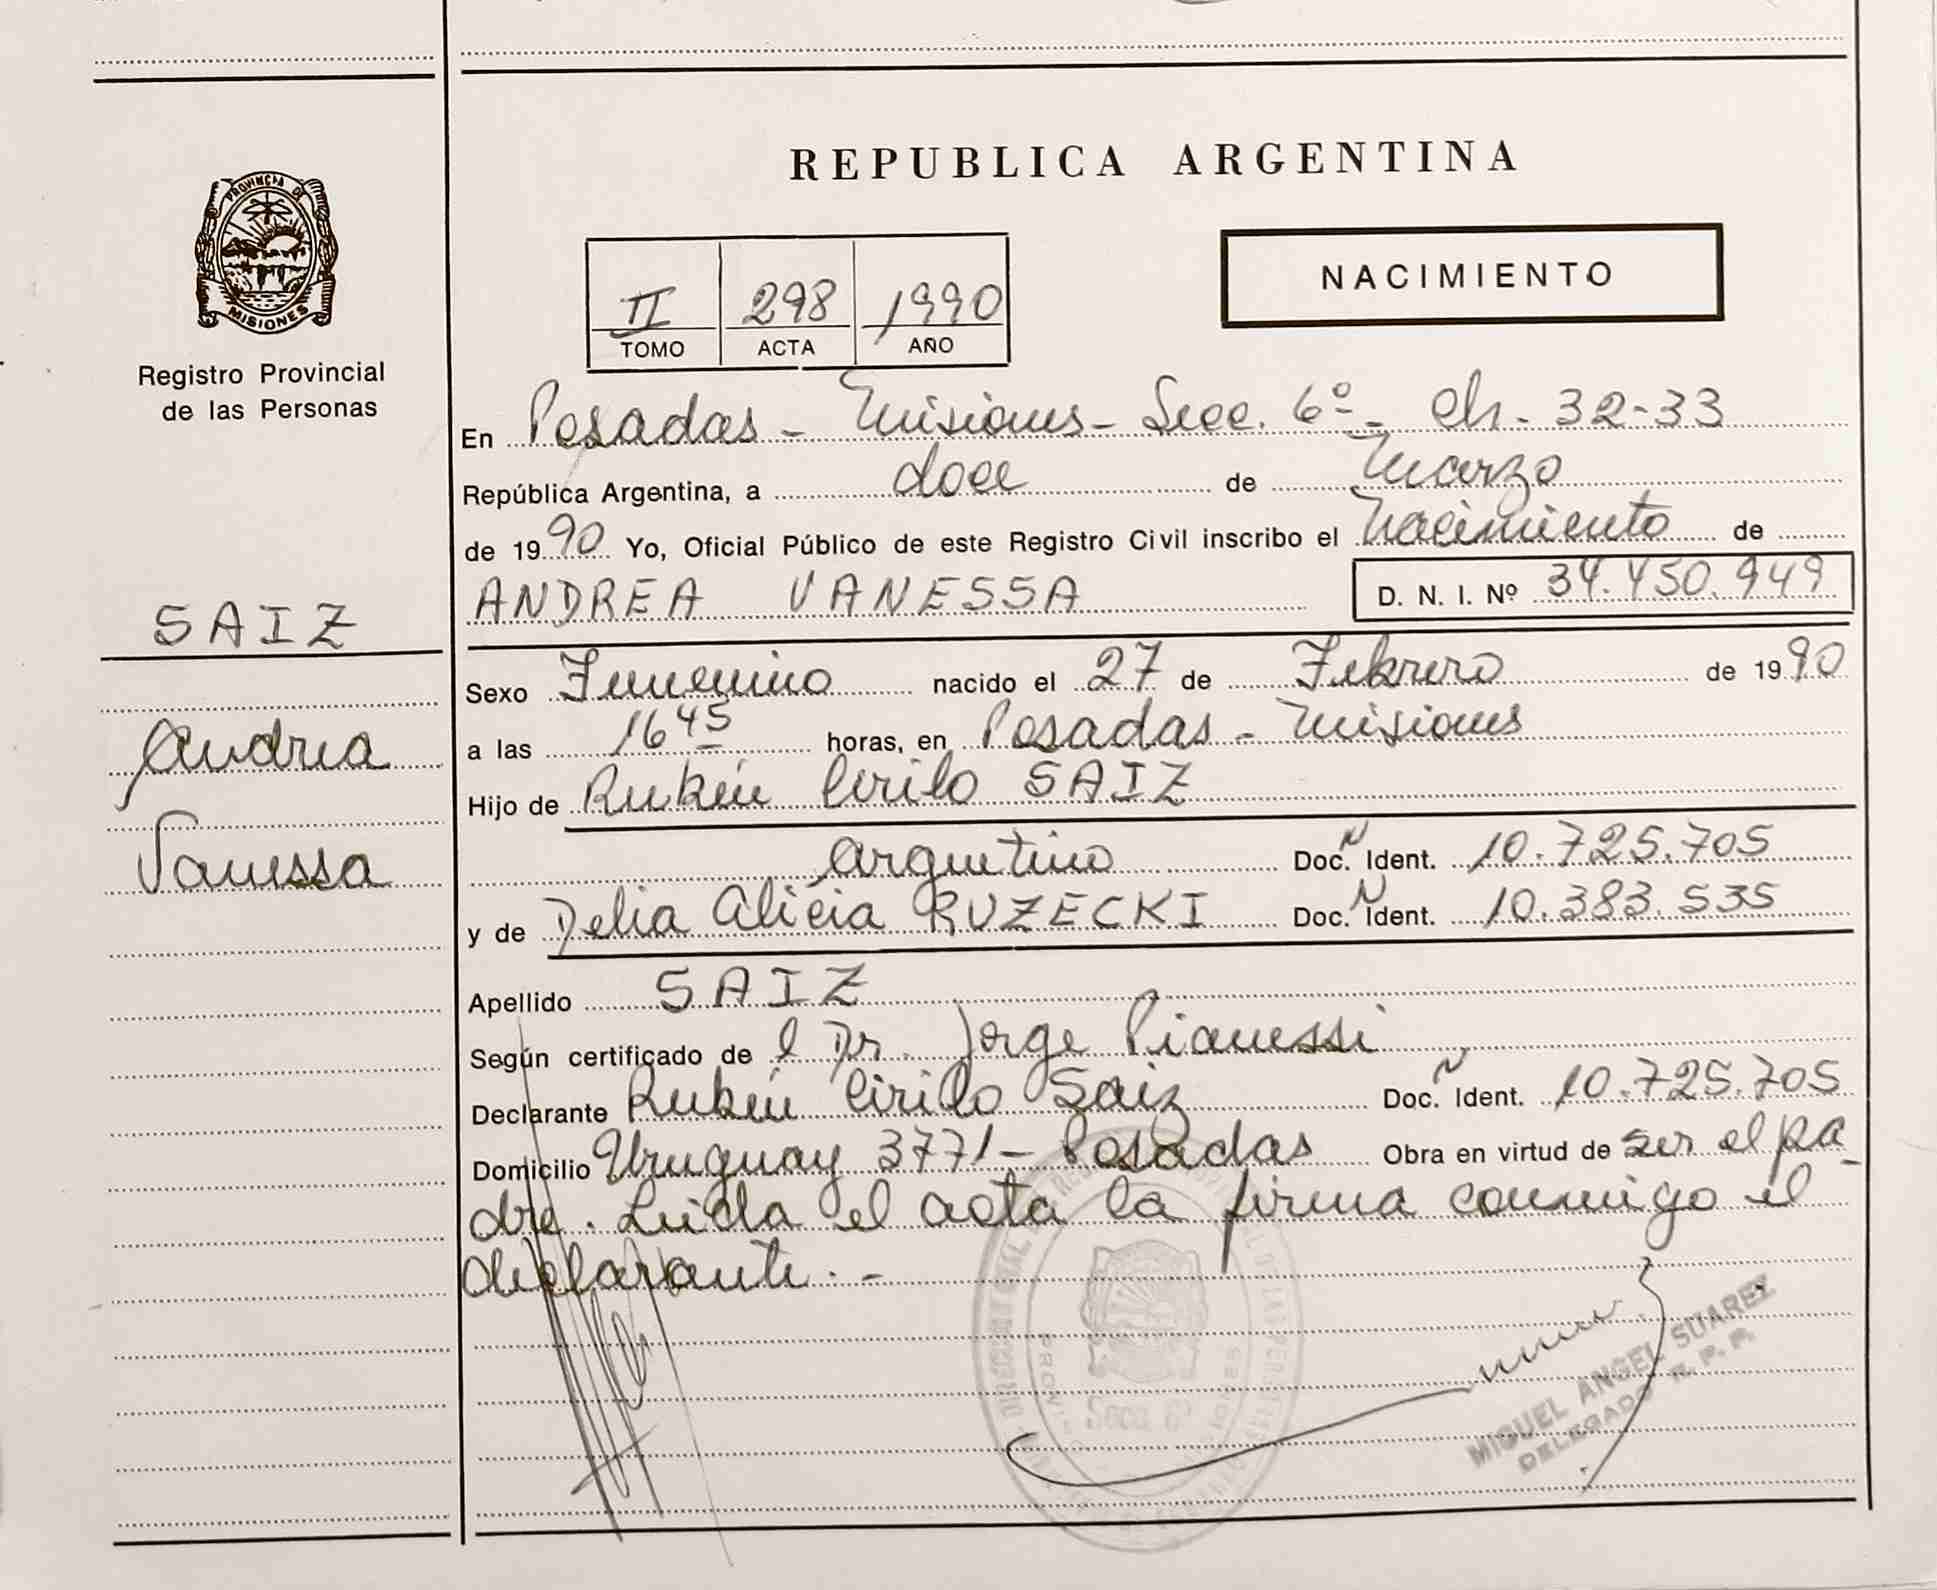 PROVINCIA DE
MISIONES
Registro Provincial
de las Personas
SAIZ
Andrea
Vanessa
REPUBLICA ARGENTINA
II 298 1990
TOMO ACTA AÑO
NACIMIENTO
En Posadas - Misiones - Secc. 6º - Ch. 32-33
República Argentina, a doce de Marzo
de 1990 Yo, Oficial Público de este Registro Civil inscribo el Nacimiento de
ANDREA VANESSA D. N. I. Nº 34.450.949
Sexo Femenino nacido el 27 de Febrero de 1990
a las 16 45 horas, en Posadas - Misiones
Hijo de Rubén Cirilo SAIZ
argentino Doc. N Ident. 10.725.705
y de Delia Alicia RUZECKI Doc. N Ident. 10.383.535
Apellido SAIZ
Según certificado de l Dr. Jorge Pianessi
Declarante Rubén Cirilo Saiz Doc. N Ident. 10.725.705
Domicilio Uruguay 3771 - Posadas Obra en virtud de ser el pa-
dre. Leída el acta la firma conmigo el
declarante. -
Secc. 6º
MIGUEL ANGEL SUAREZ
DELEGADO R. P. P.